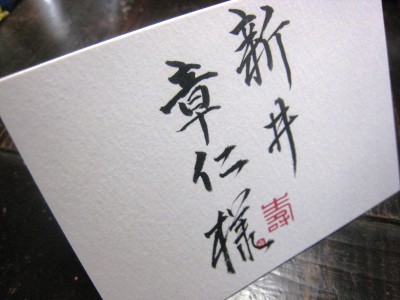 新井
章仁様
壽